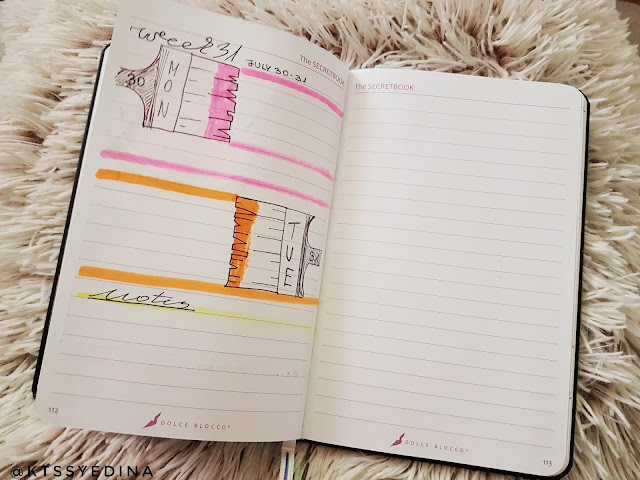 Week 31
The SECRETBOOK
JULY 30-31
30
MON
TUE
31
Notes
112
DOLCE BLOCCO®
The SECRETBOOK
DOLCE BLOCCO®
113
@KTSSYEDINA